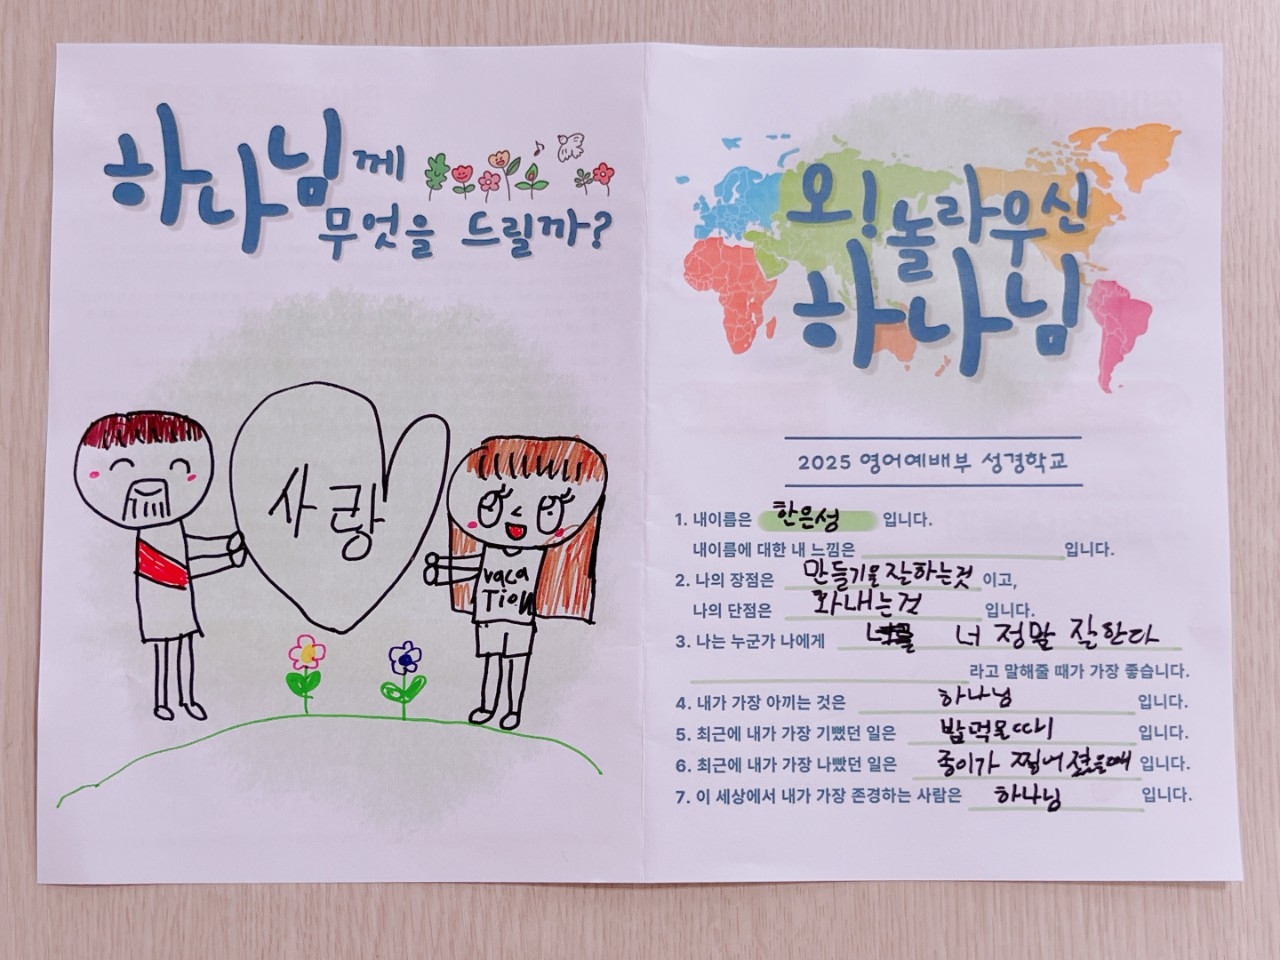 하나님께
무엇을 드릴까?
사랑
vaca
Tion
오! 놀라우신
하나님
2025 영어예배부 성경학교
1. 내이름은 한은성 입니다.
내이름에 대한 내 느낌은 입니다.
2. 나의 장점은 만들기을 잘하는것 이고,
나의 단점은 화내는것 입니다.
3. 나는 누군가 나에게 너 정말 잘한다
라고 말해줄 때가 가장 좋습니다.
4. 내가 가장 아끼는 것은 하나님 입니다.
5. 최근에 내가 가장 기뻤던 일은 밥먹을때 입니다.
6. 최근에 내가 가장 나빴던 일은 종이가 찢어졌을때 입니다.
7. 이 세상에서 내가 가장 존경하는 사람은 하나님 입니다.